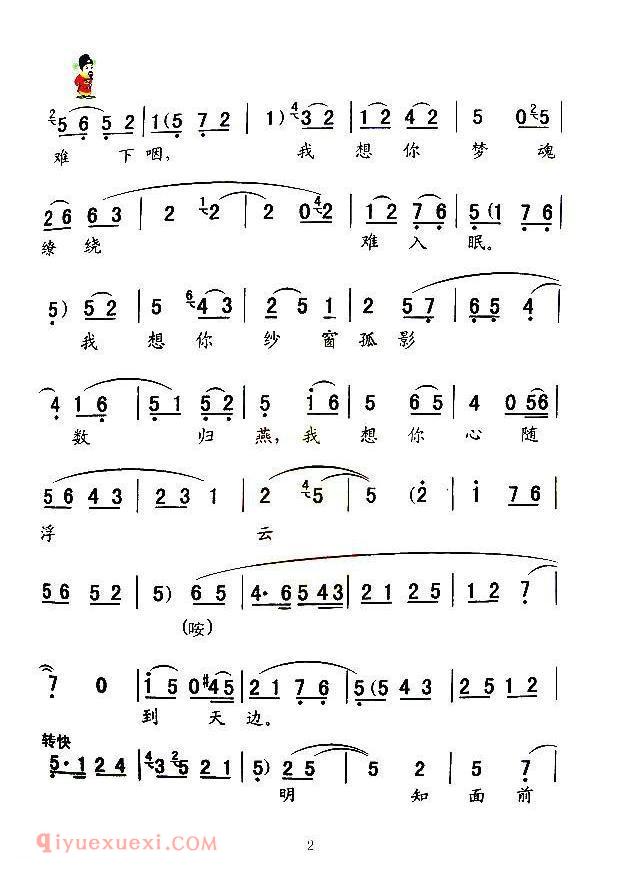 5 6 5 2 | 1 (5 7 2 | 1) 3 2 | 1 2 4 2 | 5 0 5
难 下 咽, 我 想 你 梦 魂
2 6 6 3 | 2 2 | 2 0 2 | 1 2 7 6 | 5 (1 7 6
缭 绕 难 入 眠。
5) 5 2 | 5 4 3 | 2 1 | 2 5 7 | 6 5 4
我 想 你 纱 窗 孤 影
4 1 6 | 5 1 5 2 | 5 1 6 | 5 6 5 | 4 0 56
数 归 燕, 我 想 你 心 随
5 6 4 3 | 2 3 1 | 2 5 | 5 (2 | 1 7 6
浮 云
5 6 5 2 | 5) 6 5 | 4· 6 5 4 3 | 2 1 2 5 | 1 2 7
(咹)
7 0 | 1 5 0 #4 5 | 2 1 7 6 | 5 (5 4 3 | 2 5 1 2
到 天 边。
转快
5· 1 2 4 | 3 5 2 1 | 5) 2 5 | 5 2 | 5 7
明 知 面 前
qiyuexuexi.com
2